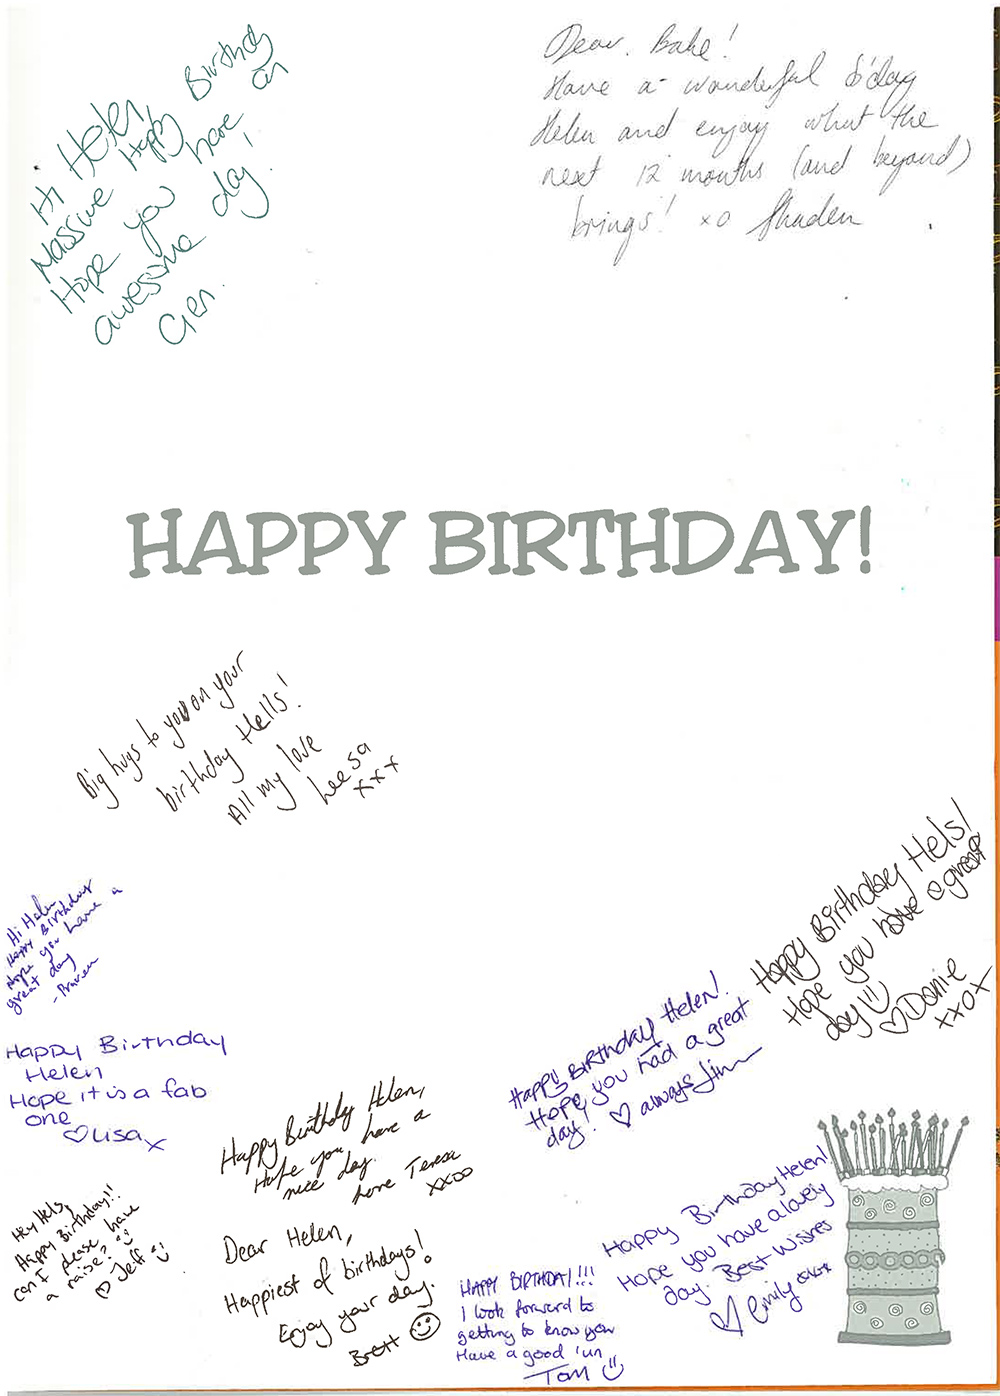 Hi Helen,
Massive Happy Birthday
Hope you have an
awesome day!
Gen.
Dear. Babe!
Have a wonderful b'day
Helen and enjoy what the
next 12 months (and beyond)
brings! xo
HAPPY BIRTHDAY!
Big hugs to you on your
birthday Hells!
All my love
Leesa
xxx
Happy Birthday Hels!
Hope you have a great
day
♡ Danie
xxox
Hi Helen
Happy Birthday
Hope you have a
great day
- Praveen
Happy Birthday
Helen
Hope it is a fab
one
♡ Lisa x
Happy Birthday Helen!
Hope you had a great
day! ♡ always Jim
Happy Birthday Helen,
Hope you have a
nice day.
love Teresa
xxoo
Hey Hels,
Happy Birthday!!
can I please have
a raise?
♡ Jeff
Dear Helen,
Happiest of birthdays!
Enjoy your day.
Brett
HAPPY BIRTHDAY!!!
I look forward to
getting to know you
Have a good 'un
Tom
Happy Birthday Helen!
Hope you have a lovely
day. Best Wishes
♡ Emily